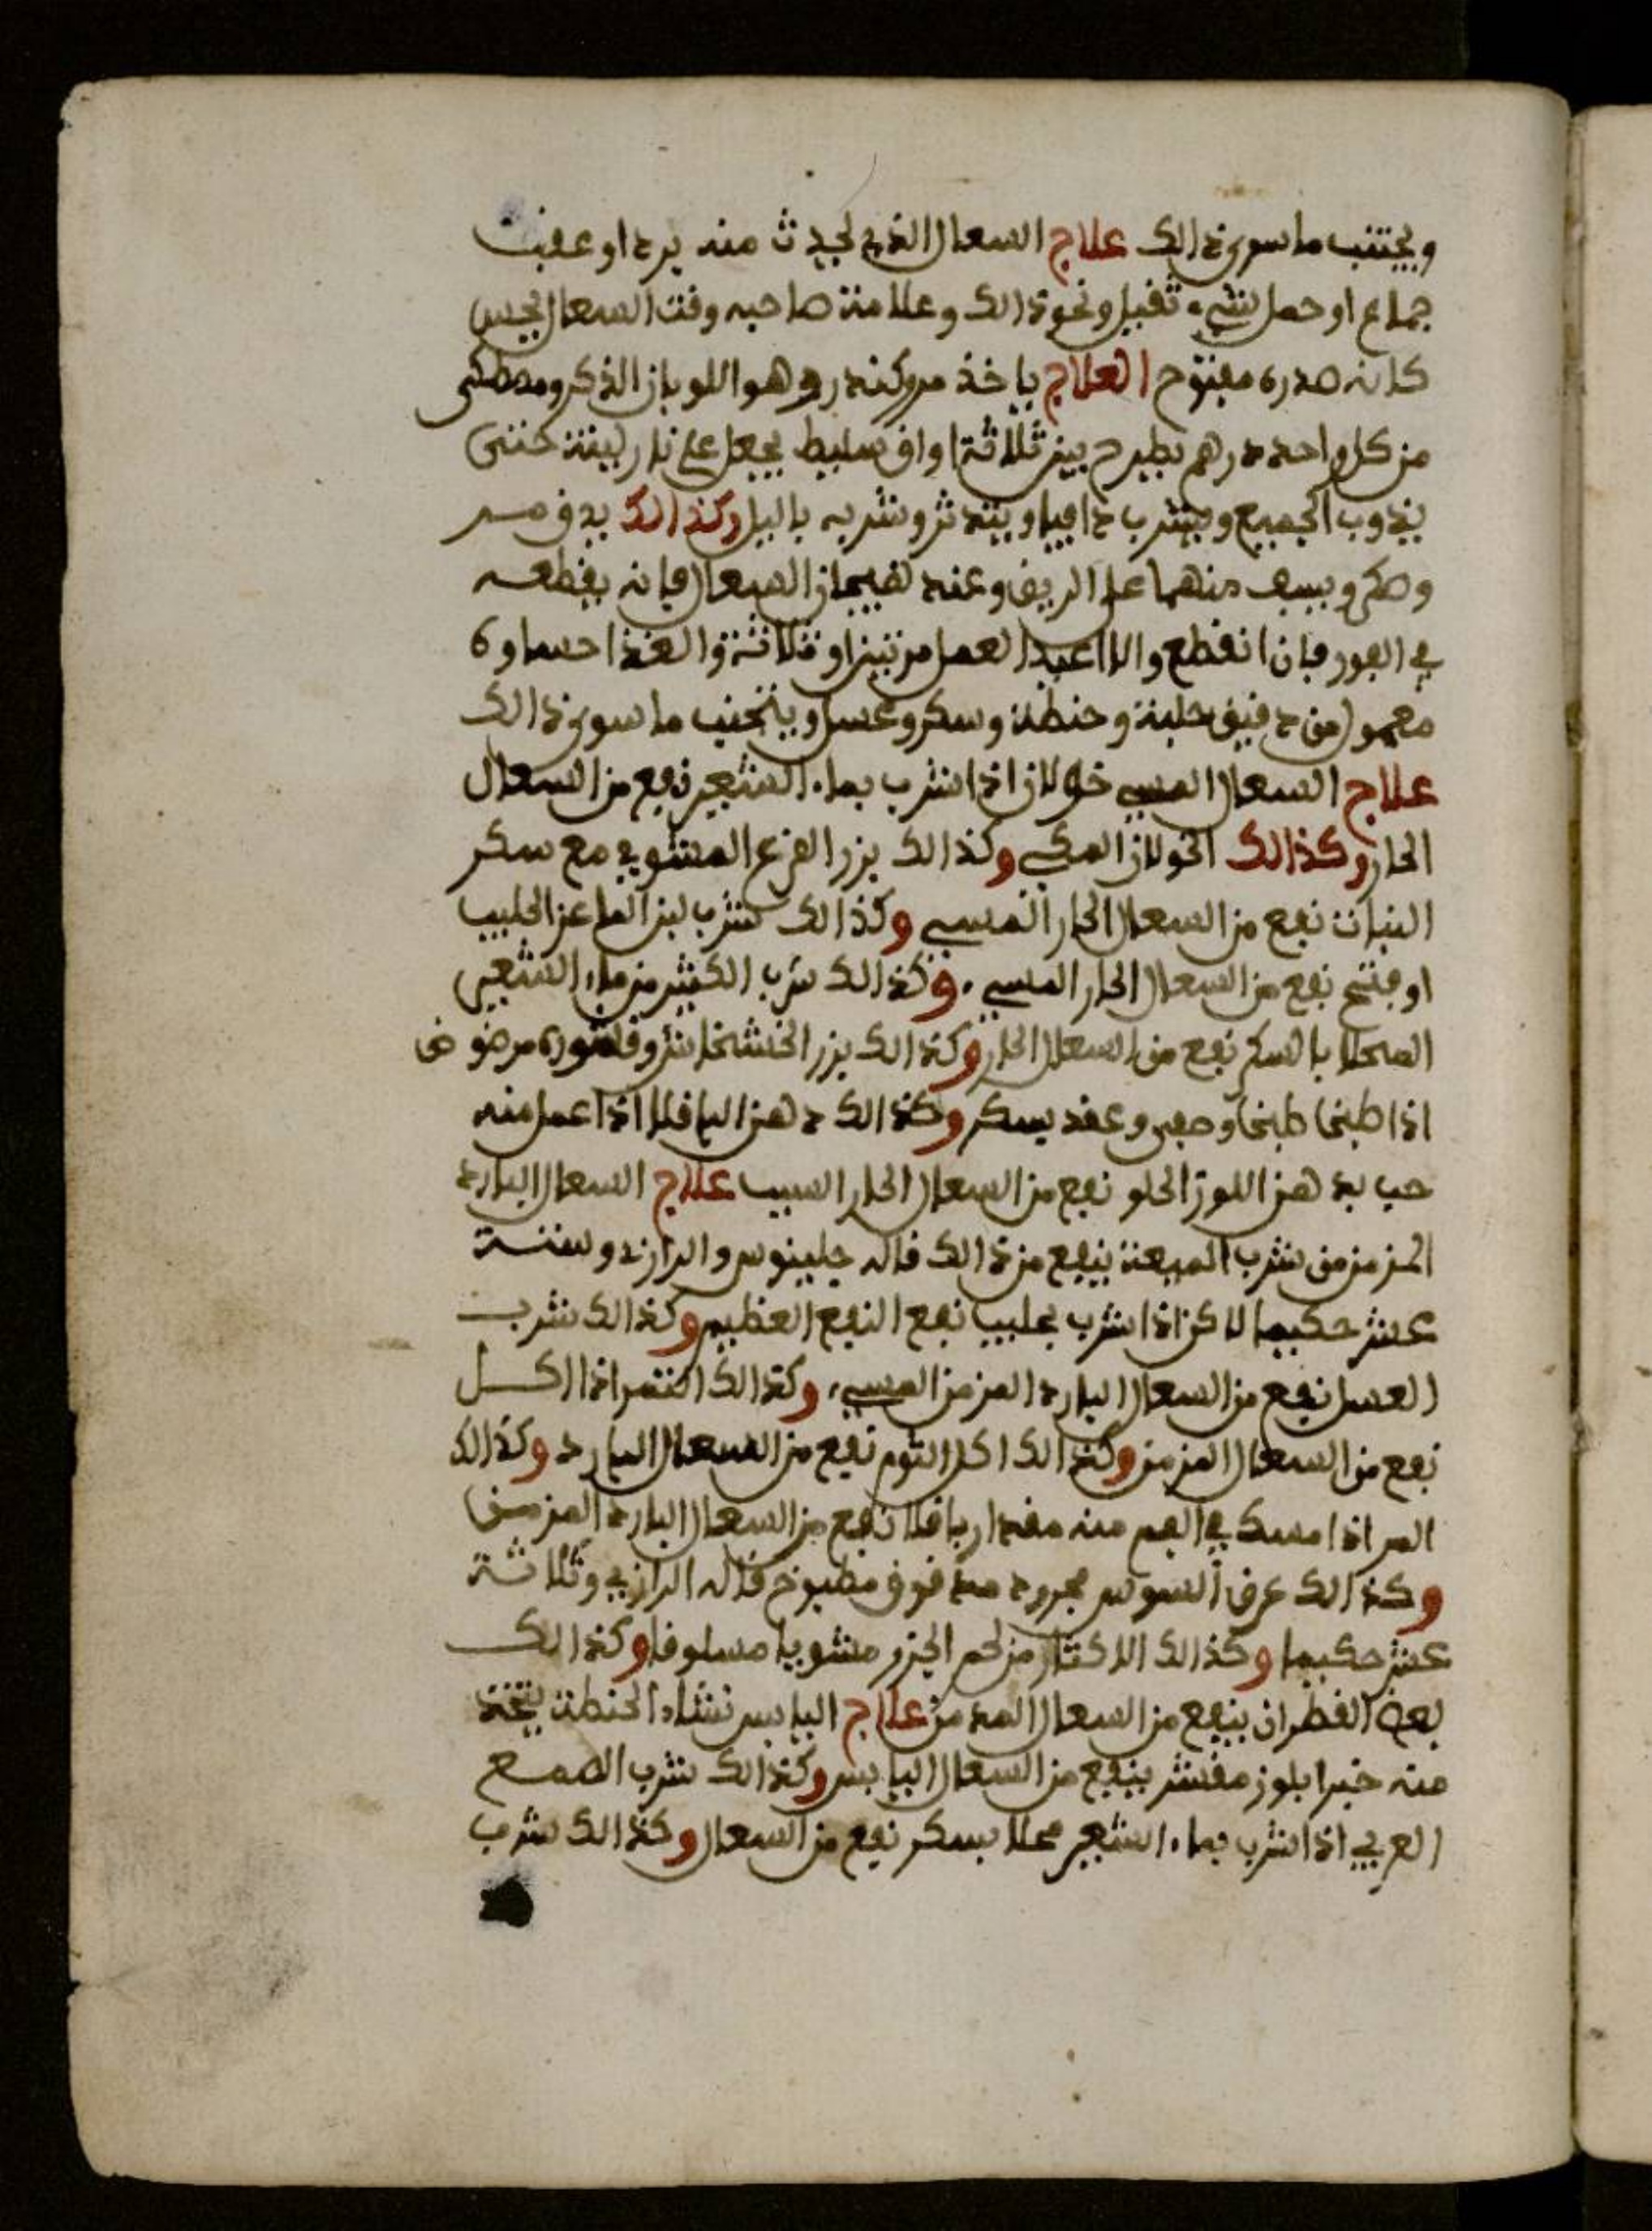 ويجتنب ما سوى ذالك علاج السعال الذي يحدث منه برد او عقب
جماع او حمل شيء ثقيل ونحو ذالك وعلامته صاحبه وقت السعال يحس
كانه صدره مفتوح العلاج ياخذ مر وكندر وهو اللوبان الذكر ومصطكى
من كل واحد درهم يطرح بين ثلاثة اواق سليط يجعل على نار لينة حتى
يذوب الجميع ويشرب دافيا ويتدثر وشربه باليل وكذالك يدق مر
وصكر ويسف منهما على الريق وعند هيجان السعال فانه يقطعه
في الفور فان انقطع والا اعيد العمل مرتين او ثلاثة والغذا حساوة
معمول من دقيق حلبة وحنطة وسكر وعسل ويتجنب ما سوى ذالك
علاج السعال المسي خولان اذا شرب بماء الشعير نفع من السعال
الحار وكذالك الخولان المكي وكذالك بزر القرع المشوي مع سكر
النبات نفع من السعال الحار المسي وكذالك شرب لبن الماعز الحليب
او نفع من السعال الحار المسي وكذالك شرب الكثير من ماء الشعير
المحلا بالسكر نفع من السعال الحار وكذالك بزر الخشخاش وقشوره مرضوض
اذا طبخا طبخا وصفي وعقد بسكر وكذالك دهن الباقلا اذا عمل منه
حب بدهن اللوز الحلو نفع من السعال الحار السبب علاج السعال البارد
المزمن من شرب الميعة ينفع من ذالك قاله جلينوس والرازي وستة
عشر حكيما لاكن اذا شرب بحليب نفع النفع العظيم وكذالك شرب
العسل نفع من السعال البارد المزمن المسي وكذالك التمر اذا اكل
نفع من السعال المزمن وكذالك اكل الثوم نفع من السعال البارد وكذالك
المر اذا امسك في الفم منه مقدار باقلا نفع من السعال البارد المزمن
وكذالك عرق السوس مجرود مدقوق مطبوخ قاله الرازي وثلاثة
عشر حكيما وكذالك الاكثار من لحم الجزر مشويا مسلوقا وكذالك
لعق القطران ينفع من السعال المدمن علاج اليابس نشاء الحنطة يتخذ
منه خبرا بلوز مقشر ينفع من السعال اليابس وكذالك شرب الصمغ
العربي اذا شرب بماء الشعير محلا بسكر نفع من السعال وكذالك شرب